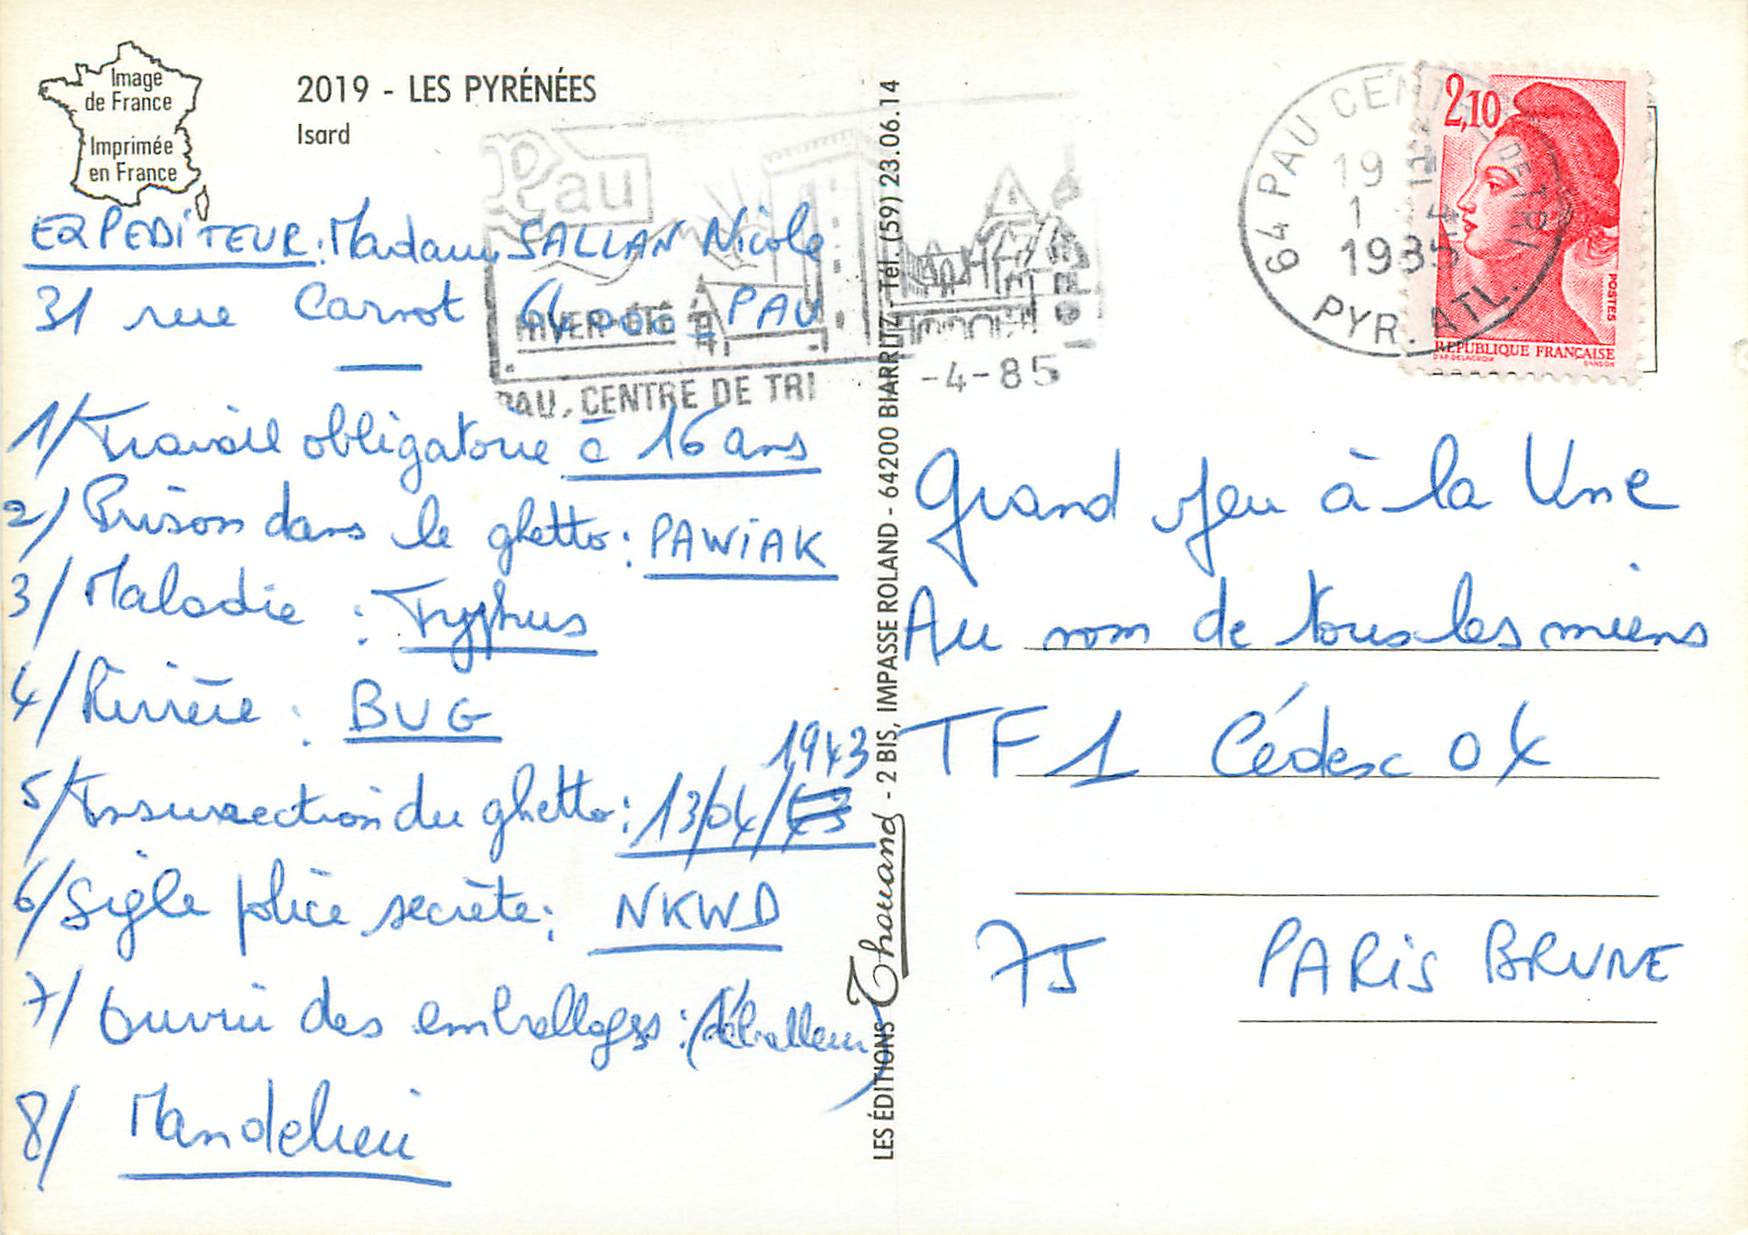 Image
de France
Imprimée
en France
2019 - LES PYRÉNÉES
Isard
Pau
HIVER-ÉTÉ
PAU, CENTRE DE TRI
-4-85
EXPEDITEUR: Madame SALLAN Nicole
31 rue Carnot 64000 PAU
1/ Travail obligatoire à 16 ans
2/ Prison dans le ghetto: PAWIAK
3/ Maladie : Typhus
4/ Rivière : BUG
1943
5/ Insurrection du ghetto: 13/04/43
6/ Sigle police secrète: NKWD
7/ Ouvrir des emballages: (déballeur)
8/ Mandelieu
LES ÉDITIONS Thouand - 2 BIS, IMPASSE ROLAND - 64200 BIARRITZ - Tél. (59) 23.06.14
64 PAU CENTRE DE TRI
19 H
1 4
1985
PYR. ATL.
2,10
POSTES
REPUBLIQUE FRANÇAISE
D'AP. DELACROIX
GANDON
Grand jeu à la Une
Au nom de tous les miens
TF1 Cédesc 0X
75 PARIS BRUNE